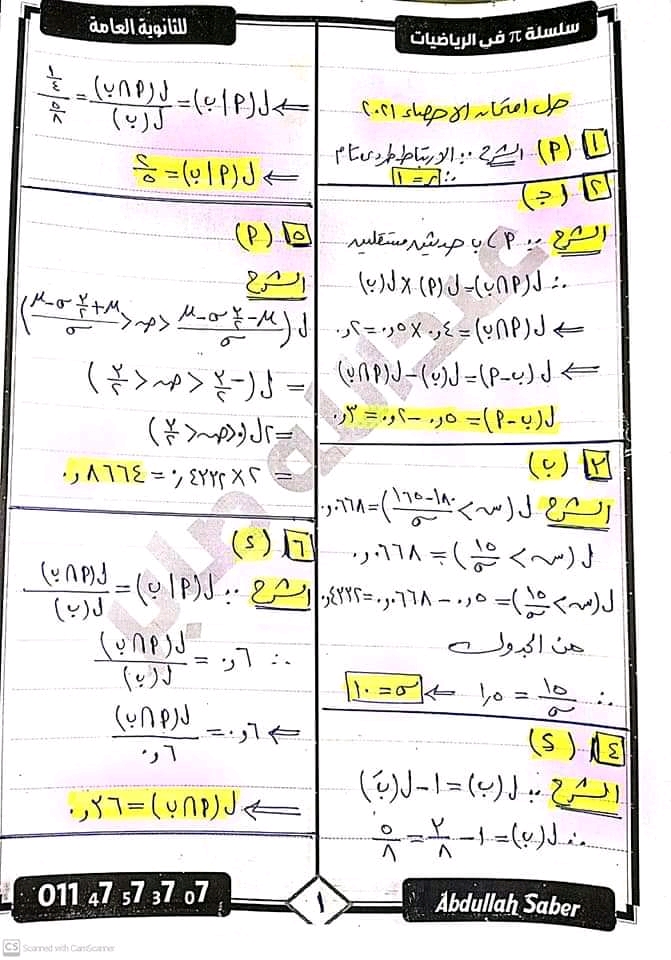 سلسلة π في الرياضيات
للثانوية العامة
حل امتحان الاحصاء ٢٠٢١
١ (P) الشرح ∵ الارتباط طردى تام
∴ ر = ١
٢ (جـ)
الشرح ∵ P، ب حدثين مستقلين
∴ ل(P∩ب) = ل(P) × ل(ب)
⇐ ل(P∩ب) = ٠,٤ × ٠,٥ = ٠,٢
⇐ ل(ب-P) = ل(ب) - ل(P∩ب)
ل(ب-P) = ٠,٥ - ٠,٢ = ٠,٣
٣ (ب)
الشرح ل(ص > (١٨٠-١٦٥)/σ) = ٠,٠٦٦٨
ل(ص > ١٥/σ) = ٠,٠٦٦٨
ل(ص < ١٥/σ) = ٠,٥ - ٠,٠٦٦٨ = ٠,٤٣٣٢
من الجدول
∴ ١٥/σ = ١,٥ ⇐ σ = ١٠
٤ (د)
الشرح ∵ ل(ب) = ١ - ل(بَ)
∴ ل(ب) = ١ - ٣/٨ = ٥/٨
⇐ ل(P|ب) = ل(P∩ب)/ل(ب) = (١/٤)/(٥/٨)
⇐ ل(P|ب) = ٢/٥
٥ (P)
الشرح
ل((μ - ٣/٢ σ - μ)/σ < ص < (μ + ٣/٢ σ - μ)/σ)
= ل(-٣/٢ < ص < ٣/٢)
= ٢ ل(٠ < ص < ٣/٢)
= ٢ × ٠,٤٣٣٢ = ٠,٨٦٦٤
٦ (د)
الشرح ∵ ل(P|ب) = ل(P∩ب)/ل(ب)
∴ ٠,٦ = ل(P∩ب)/ل(ب)
⇐ ٠,٦ = ل(P∩ب)/٠,٦
⇐ ل(P∩ب) = ٠,٣٦
عبدالله صابر
011 47 57 37 07
١
Abdullah Saber
CS Scanned with CamScanner